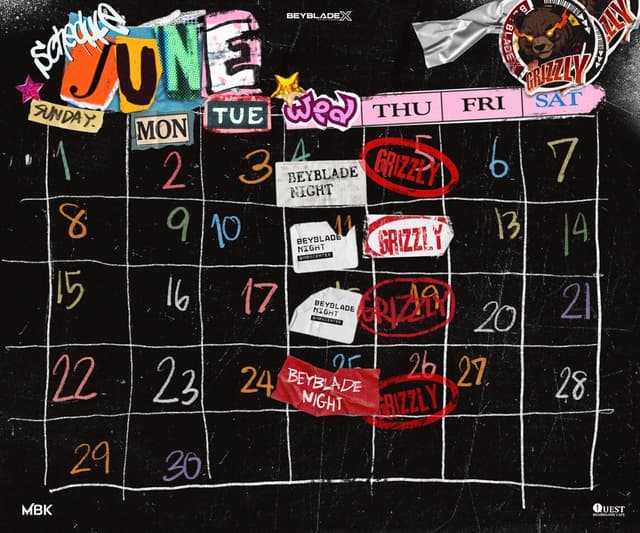 BEYBLADE X
Schedule
JUNE
GRIZZLY
SUNDAY.
MON
TUE
Wed
THU
FRI
SAT
1
2
3
4
BEYBLADE
NIGHT
5
GRIZZLY
6
7
8
9
10
11
BEYBLADE
NIGHT
GRIZZLY
13
14
15
16
17
BEYBLADE
NIGHT
19
GRIZZLY
20
21
22
23
24
25
BEYBLADE
NIGHT
26
GRIZZLY
27.
28
29
30
MBK
QUEST